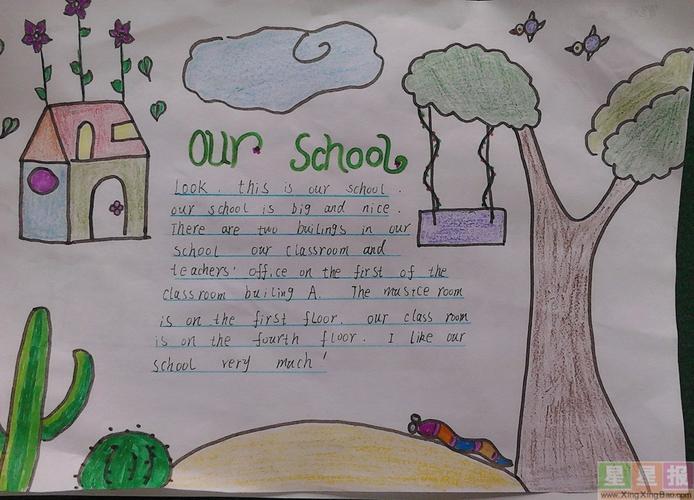 our school
Look, this is our school.
our school is big and nice.
There are two builings in our
school our classroom and
teachers' office on the first of the
classroom builing A. The mustce room
is on the first floor. our class room
is on the fourth floor. I like our
school very much!
星星报
www.XingXingBao.com